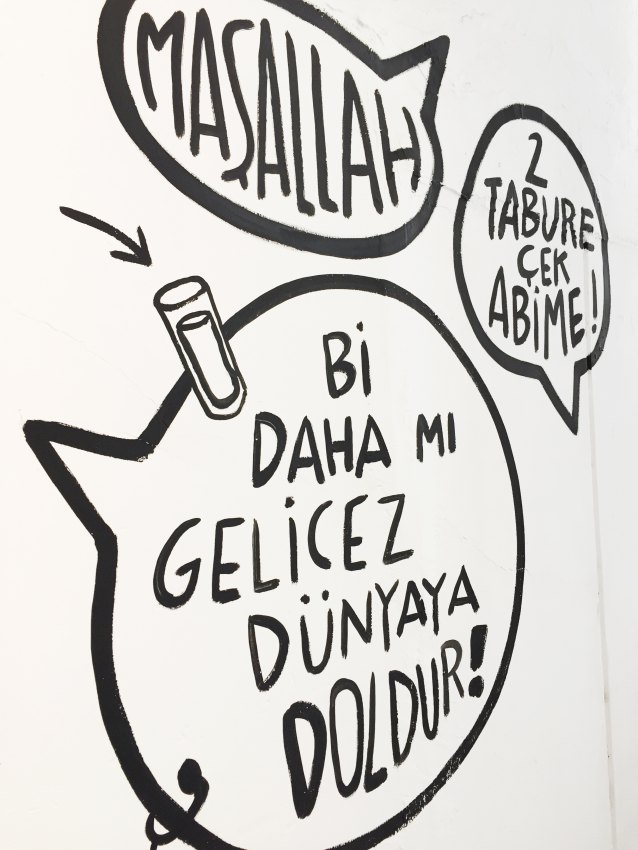 MAŞALLAH
2
TABURE
ÇEK
ABİME!
Bİ
DAHA MI
GELİCEZ
DÜNYAYA
DOLDUR!